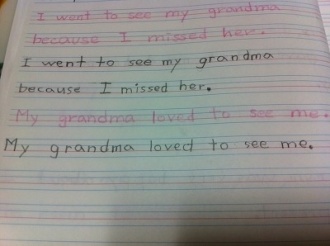 I went to see my grandma
because I missed her.
I went to see my grandma
because I missed her.
My grandma loved to see me.
My grandma loved to see me.